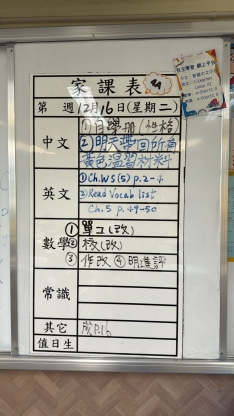 家課表
第 週12月16日(星期二)
中文
①自學冊(性格
②明天帶回所有
黃色溫習材料
英文
①Ch.WS(5) p.2-4
②Read Vocab list
Ch.5 p.49-50
數學
①單工(改)
②核(改)
③作改 ④明進評
常識
其它
成P.16
值日生
自主學習 網上平台